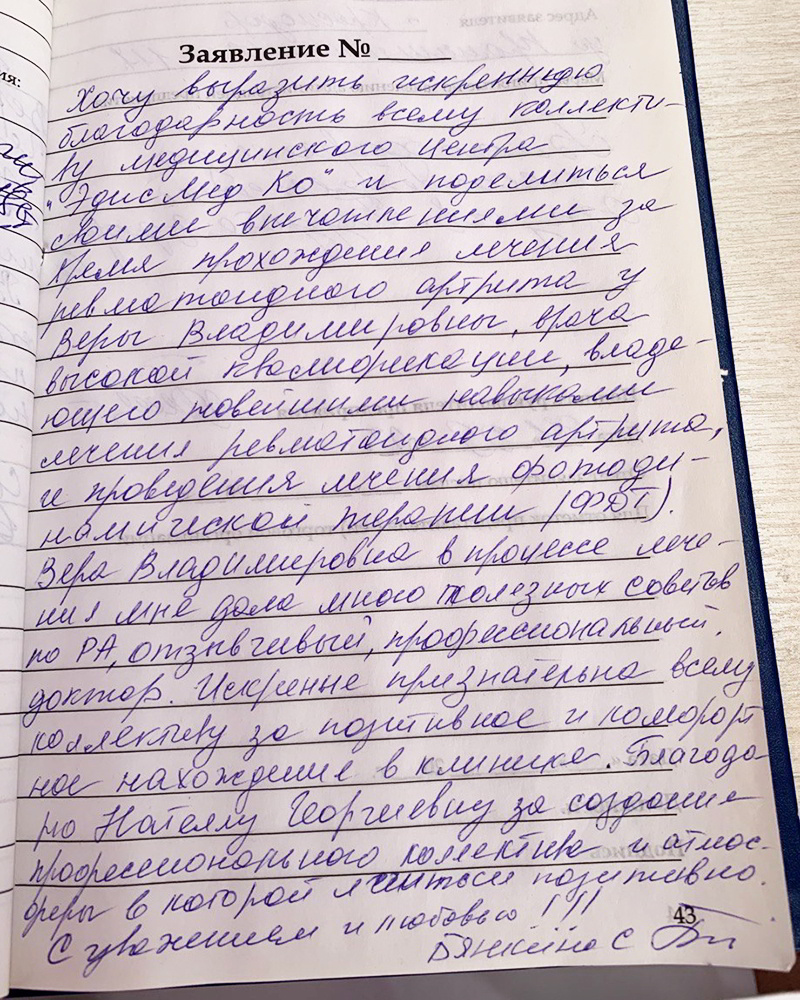 Заявление № ____
Хочу выразить искреннюю
благодарность всему коллекти-
ву медицинского центра
"Эдис Мед Ко" и поделиться
своими впечатлениями за
время прохождения лечения
ревматоидного артрита у
Веры Владимировны, врача
высокой квалификации, владе-
ющего новейшими навыками
лечения ревматоидного артрита,
и проведения лечения фотоди-
намической терапии (ФДТ).
Вера Владимировна в процессе лече-
ния мне дала много полезных советов
по РА, отзывчивый, профессиональный
доктор. Искренне признательна всему
коллективу за позитивное и комфорт
ное нахождение в клинике. Благода-
рю Нателлу Георгиевну за создание
профессионального коллектива и атмос-
феры в которой лечиться позитивно.
С уважением и любовью !!!
43